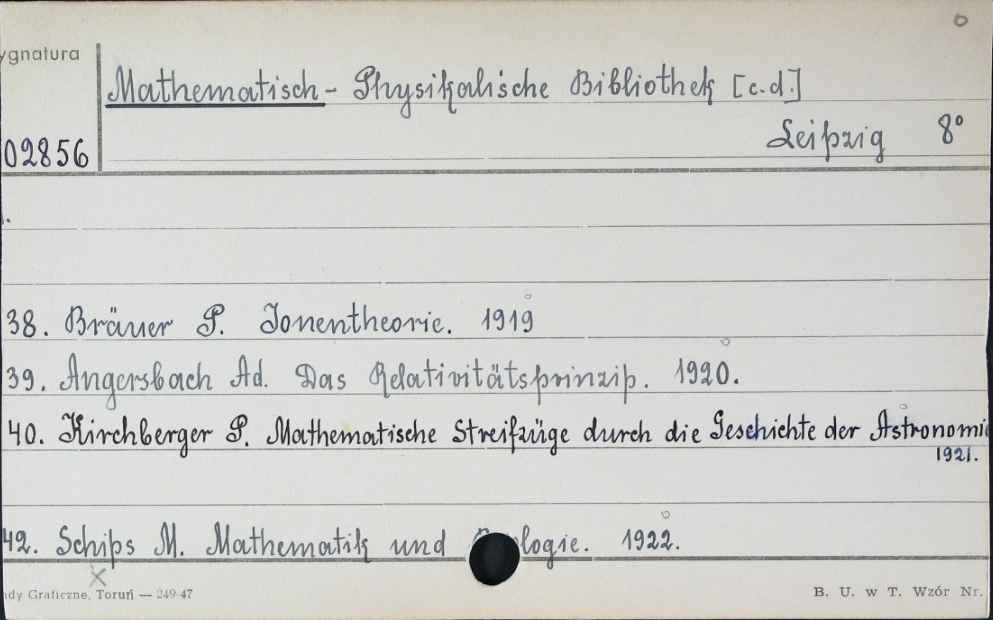 ygnatura
Mathematisch-Physikalische Bibliothek [c.d.]
Leipzig 8°
02856
38. Bräuer P. Jonentheorie. 1919
39. Angersbach Ad. Das Relativitätsprinzip. 1920.
40. Kirchberger P. Mathematische Streifzüge durch die Geschichte der Astronomi
1921.
42. Schips M. Mathematik und logie. 1922.
dy Graficzne, Toruń — 249-47
B. U. w T. Wzór Nr.